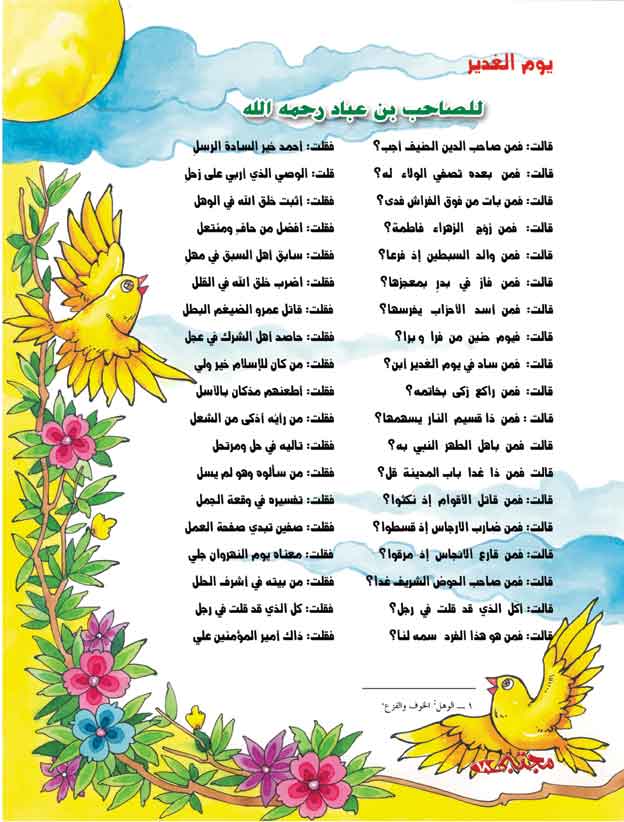 يوم الغدير
للصاحب بن عباد رحمه الله
قالت: فمن صاحب الدين الحنيف أجب؟ فقلت: أحمد خير السادة الرسل
قالت: فمن بعده تصفي الولاء له؟ قلت: الوصي الذي أربي على زحل
قالت: فمن بات من فوق الفراش فدى؟ فقلت: أثبت خلق الله في الوهل
قالت: فمن زوج الزهراء فاطمة؟ فقلت: أفضل من حافٍ ومنتعل
قالت: فمن والد السبطين إذ فرعا؟ فقلت: سابق أهل السبق في مهل
قالت: فمن فاز في بدر بمعجزها؟ فقلت: أضرب خلق الله في القلل
قالت: فمن أسد الأحزاب يفرسها؟ فقلت: قاتل عمرو الضيغم البطل
قالت: فيوم حنين من فرا و برا؟ فقلت: حاصد أهل الشرك في عجل
قالت: فمن ساد في يوم الغدير أبن؟ فقلت: من كان للإسلام خير ولي
قالت: فمن راكع زكى بخاتمه؟ فقلت: أطعنهم مذكان بالأسل
قالت: فمن ذا قسيم النار يسهمها؟ فقلت: من رأيه أذكى من الشعل
قالت فمن باهل الطهر النبي به؟ فقلت: تاليه في حل ومرتحل
قالت فمن ذا غدا باب المدينة قل؟ فقلت: من سألوه وهو لم يسل
قالت: فمن قاتل الأقوام إذ نكثوا؟ فقلت: تفسيره في وقعة الجمل
قالت: فمن ضارب الأرجاس إذ قسطوا؟ فقلت: صفين تبدي صفحة العمل
قالت: فمن قارع الأنجاس إذ مرقوا؟ فقلت: معناه يوم النهروان جلي
قالت: فمن صاحب الحوض الشريف غدا؟ فقلت: من بيته في أشرف الحلل
قالت: أكل الذي قد قلت في رجل؟ فقلت: كل الذي قد قلت في رجل
قالت: فمن هو هذا الفرد سمه لنا؟ فقلت: ذاك أمير المؤمنين علي
١ ــ الوهل: الخوف والفزع.